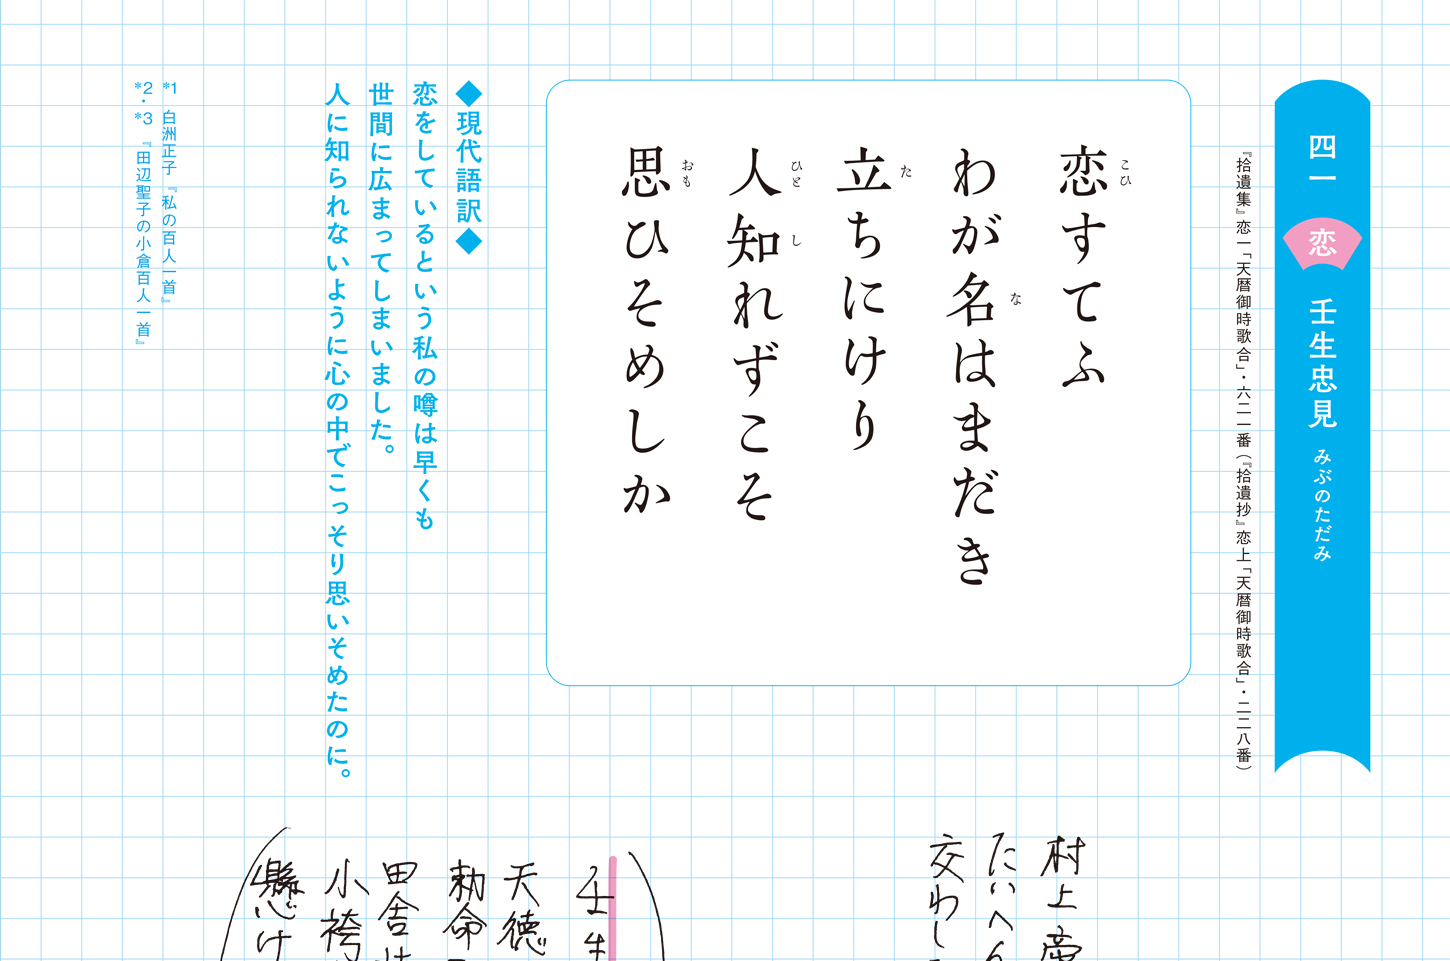 四一 恋 壬生忠見 みぶのただみ
『拾遺集』恋一「天暦御時歌合」・六二一番(『拾遺抄』恋上「天暦御時歌合」・二二八番)
恋すてふ
こひ
わが名はまだき
な
立ちにけり
た
人知れずこそ
ひと し
思ひそめしか
おも
◆現代語訳◆
恋をしているという私の噂は早くも
世間に広まってしまいました。
人に知られないように心の中でこっそり思いそめたのに。
*1 白洲正子『私の百人一首』
*2・*3 『田辺聖子の小倉百人一首』
村上帝
たいへん
交わし
壬生
天徳
勅命
田舎
小袴
懸け